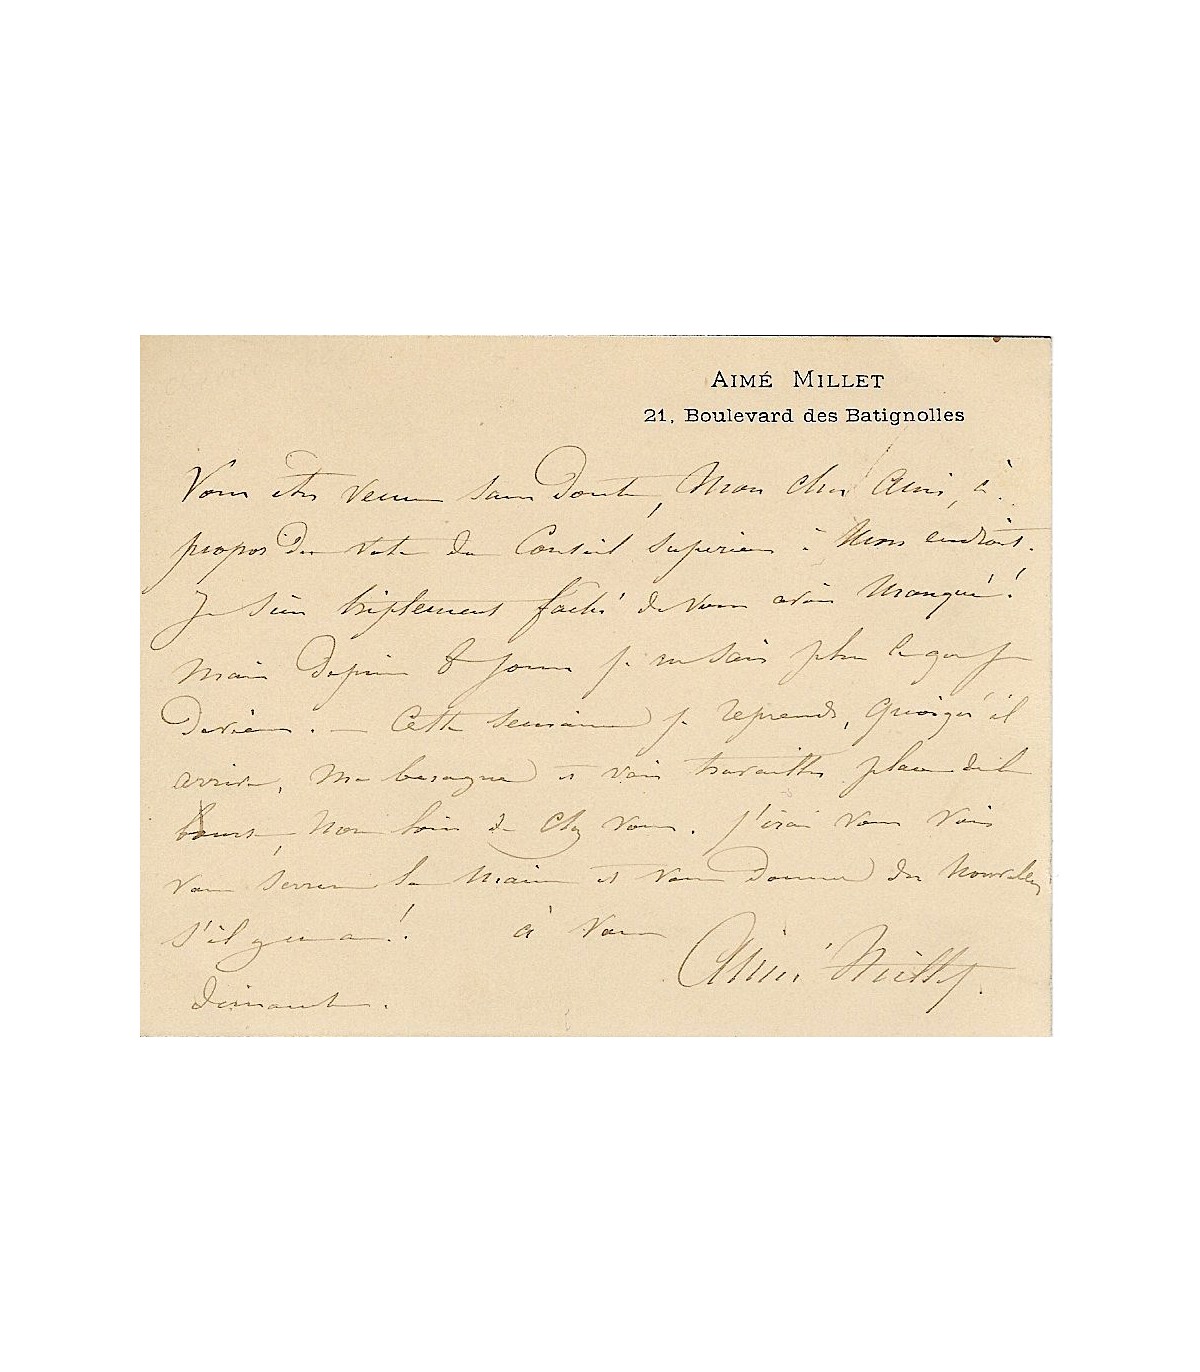 AIMÉ MILLET
21, Boulevard des Batignolles
Vous êtes venu sans doute, Mon cher Ami, à
propos du vote du Conseil Supérieur à mon endroit.
Je suis triplement faché de vous avoir manqué!
Mais depuis 8 jours je ne sais plus ce que je
deviens. — Cette semaine je reprends, quoiqu'il
arrive, ma besogne et vais travailler place de la
bourse, non loin de chez vous. J'irai vous voir
vous serrer la main et vous donner des nouvelles
s'il y en a!. à vous
Aimé Millet.
dimanche.